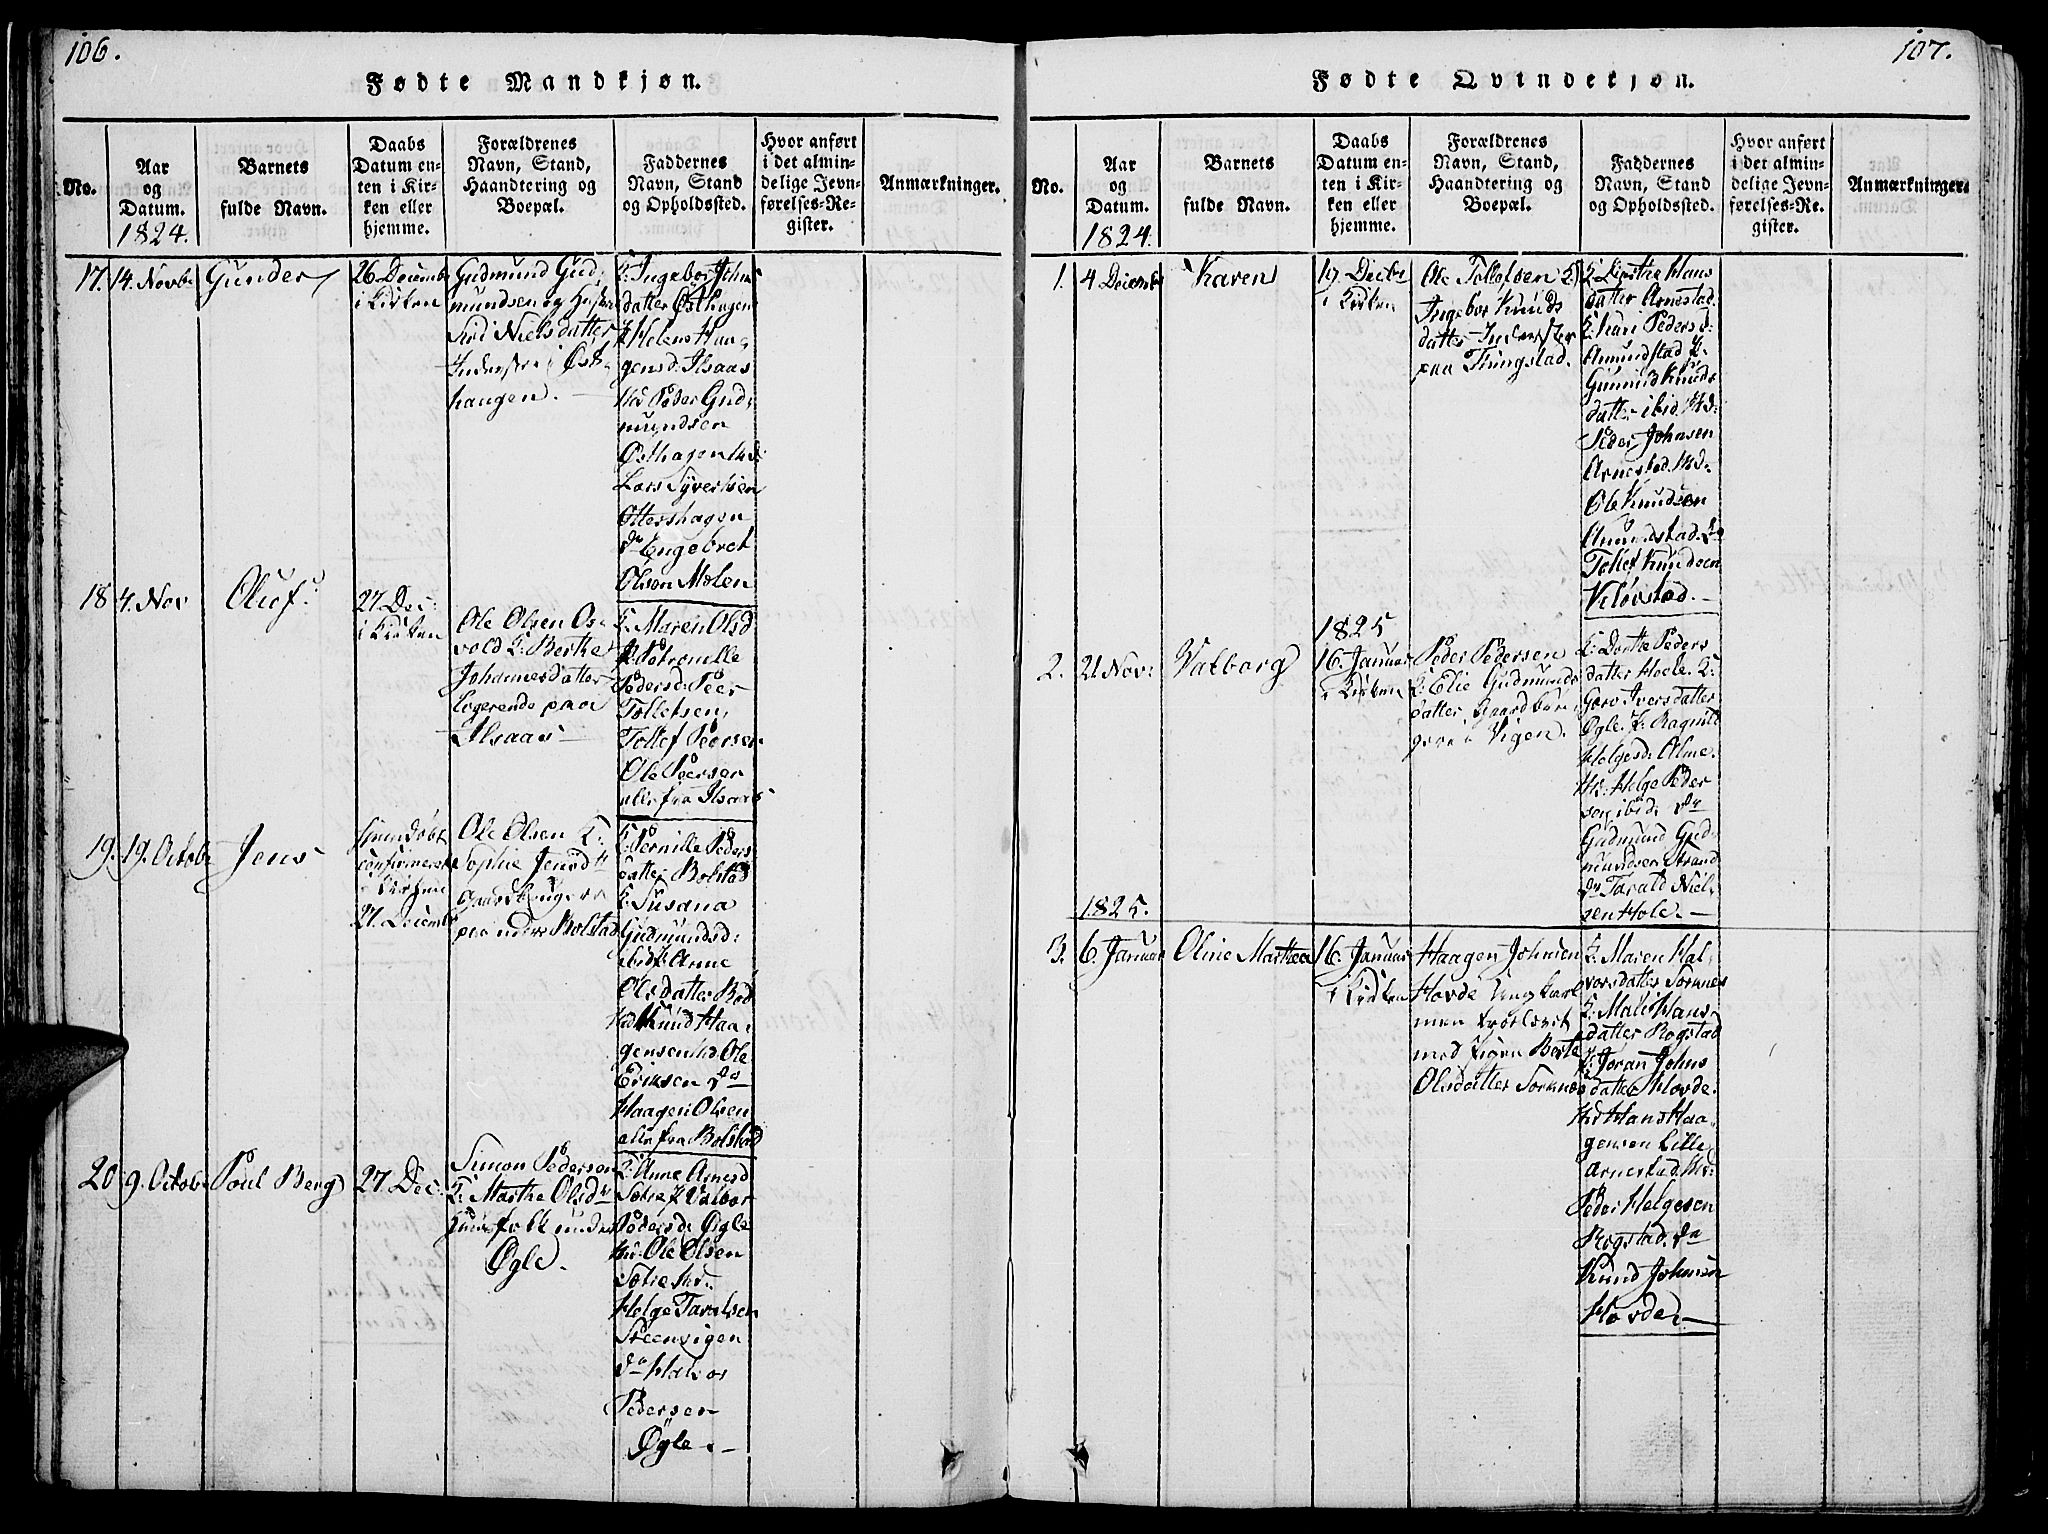 106.
Fødte Mandkjøn.
No.
Aar og Datum. 1824.
Barnets fulde Navn.
Daabs Datum enten i Kirken eller hjemme.
Forældrenes Navn, Stand, Haandtering og Boepæl.
Faddernes Navn, Stand og Opholdssted.
Hvor anført i det almindelige Jevnførelses-Register.
Anmærkninger.
17.
14. Novbr
Gunder
26 Decembr
i Kirken
Gudmund Gud-
mundsen og
Nielsdatter
Øst-
haugen.
K: Ingebor Johns
datter Østhagen
Helene Haa-
gensd: Ilsaas
Md Peder Gud-
mundsen
Østhagen Md:
Lars Syversen
Ottershagen
do Engebret
Olsen Molen
18
4. Nov
Oluf
27 Dec:
i Kirken
Ole Olsen Os-
vold K: Berthe
Johannesdatter
Logerende paa
Ilsaas
K: Maren Olsd
P: Petronelle
Pedersd: Peer
Tollefsen,
Tollef Peersen
Ole Peersen
alle fra Ilsaas
19.
19. Octobr
Jens
confirmeret
i Kirken
27. Decembr
Ole Olsen K:
Sophie Jensdtr
Gaardbrugere
paa nedre Bolstad
K: Pernille Peders
datter Bolstad
K: Susana
Gudmundsd:
ibid Anne
Olsdatter Bol
Md Knud Haa-
gensen Md. Ole
Eriksen do
Haagen Olsen
alle fra Bolstad
20
9. Octobr
Poul Berg
27 Dec:
Simon Pedersen
K: Marthe Olsdtr
Huusfolk under
Øgle.
K: Anne Arnesd
Sætre P Valbor
Pedersd: Øgle
Md: Ole Olsen
Sætre Md:
Helge Taralsen
Steenvigen
do Halvor
Pedersen
Øgle. -
107.
Fødte Qvindekjøn.
No.
Aar og Datum. 1824.
Barnets fulde Navn.
Daabs Datum enten i Kirken eller hjemme.
Forældrenes Navn, Stand, Haandtering og Boepæl.
Faddernes Navn, Stand og Opholdssted.
Hvor anført i det almindelige Jevnførelses-Register.
Anmærkninger.
1.
4 Decemb
Karen
19. Decbr
i Kirken
Ole Tollefsen K:
Ingebor Knuds
datter Inderster
paa Tingstad.
K: Kirstie Hans
datter Arnestad.
K: Kari Pedersd:
Amundstad P:
Gunnild Knuds
datter ibid. Md:
Peder Johnsen
Arnestad. Md:
Ole Knudsen
Amundstad. do
Tollef Knudsen
Kløvstad. -
2.
21. Nov:
Valborg
1825
16. Januar
i Kirken
Peder Pedersen
K: Elie Gudmunds
datter, Gaardbru-
gere i Vigen.
K: Dorthe Peders
datter Hole. K:
Goro Iversdatter
Øgle. P: Ragnild
Helgesd: Alme.
Md: Helge Peder
sen ibid: do
Gudmund Gud-
mundsen Strand
do Tarald Niel-
sen Hole. -
1825.
3.
6. Januar
Oline Mathea
16. Januar
i Kirken
Haagen Johnsen
Hovde Ungkarl
men trolovet
med Pigen Berte
Olsdatter Sornæs
K: Maren Hal-
vorsdatter Sornæs
K: Mali Hans-
datter Rogstad
P: Joran Johns
datter Hovde.
Md Hans Haa-
gensen Lille
Arnestad. Md:
Peder Helgesen
Rogstad. do
Knud Johnsen
Hovde. -